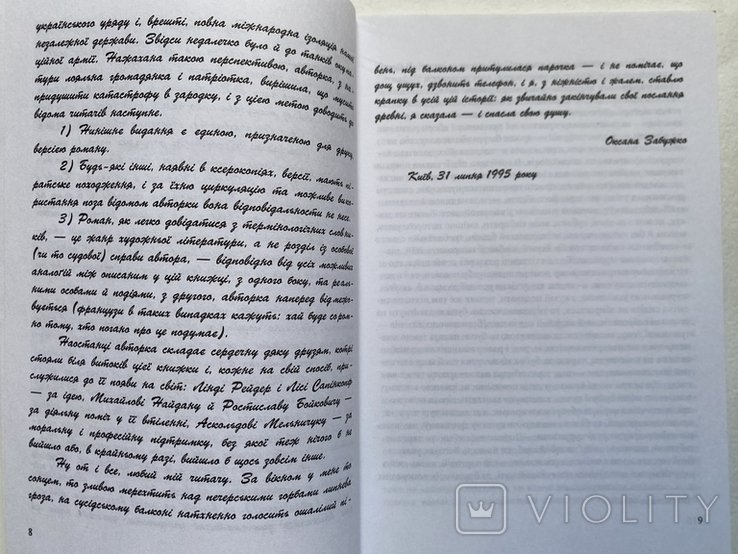 українського уряду і, врешті, повна міжнародна ізоляція нашої
незалежної держави. Звідси недалечко було й до танків окупа-
ційної армії. Нажахана такою перспективою, авторка, з на-
тури лояльна громадянка і патріотка, вирішила, що мусить
придушити катастрофу в зародку, і з цією метою доводить до
відома читачів наступне.
1) Нинішнє видання є єдиною, призначеною для друку,
версією роману.
2) Будь-які інші, наявні в ксерокопіях, версії, мають пі-
ратське походження, і за їхню циркуляцію та можливе вико-
ристання поза відомом авторки вона відповідальности не несе.
3) Роман, як легко довідатися з термінологічних словни-
ків, — це жанр художньої літератури, а не розділ із особової
(чи то судової) справи автора, — відповідно від усіх можливих
аналогій між описаним у цій книжці, з одного боку, та реаль-
ними особами й подіями, з другого, авторка наперед відмежо-
вується (французи в таких випадках кажуть: хай буде сором-
но тому, хто погано про це подумає).
Наостанці авторка складає сердечну дяку друзям, котрі
стояли біля витоків цієї книжки і, кожне на свій спосіб, при-
служилися до її появи на світ: Лінді Рейдер і Лісі Сапінкопф
— за ідею, Михайлові Найдану й Ростиславу Бойковичу —
за діяльну поміч у її втіленні, Аскольдові Мельничуку — за
моральну і професійну підтримку, без якої теж нічого б не
вийшло або, в крайньому разі, вийшло б щось зовсім інше.
Ну от і все, любий мій читачу. За вікном у мене то
сонцем, то зливою мерехтить над печерськими горбами липнева
гроза, на сусідському балконі натхненно голосить ошалілий пі-
8
вень, під балконом притулилася парочка — і не помічає, що
дощ ущух, дзвонить телефон, і я, з ніжністю і жалем, ставлю
крапку в усій цій історії: як звичайно закінчували свої послання
древні, я сказала — і спасла свою душу.
Оксана Забужко
Київ, 31 липня 1995 року
9
VIOLITY